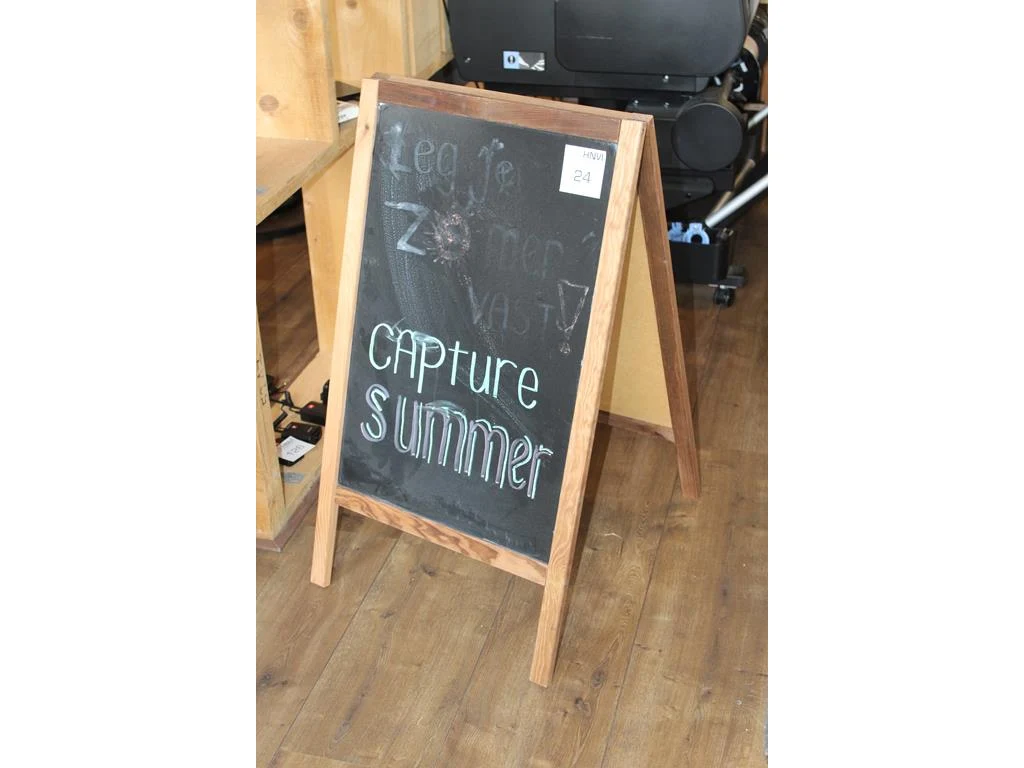 Leg je
ZOmer
VAST!
HNVI
24
CAPture
summer